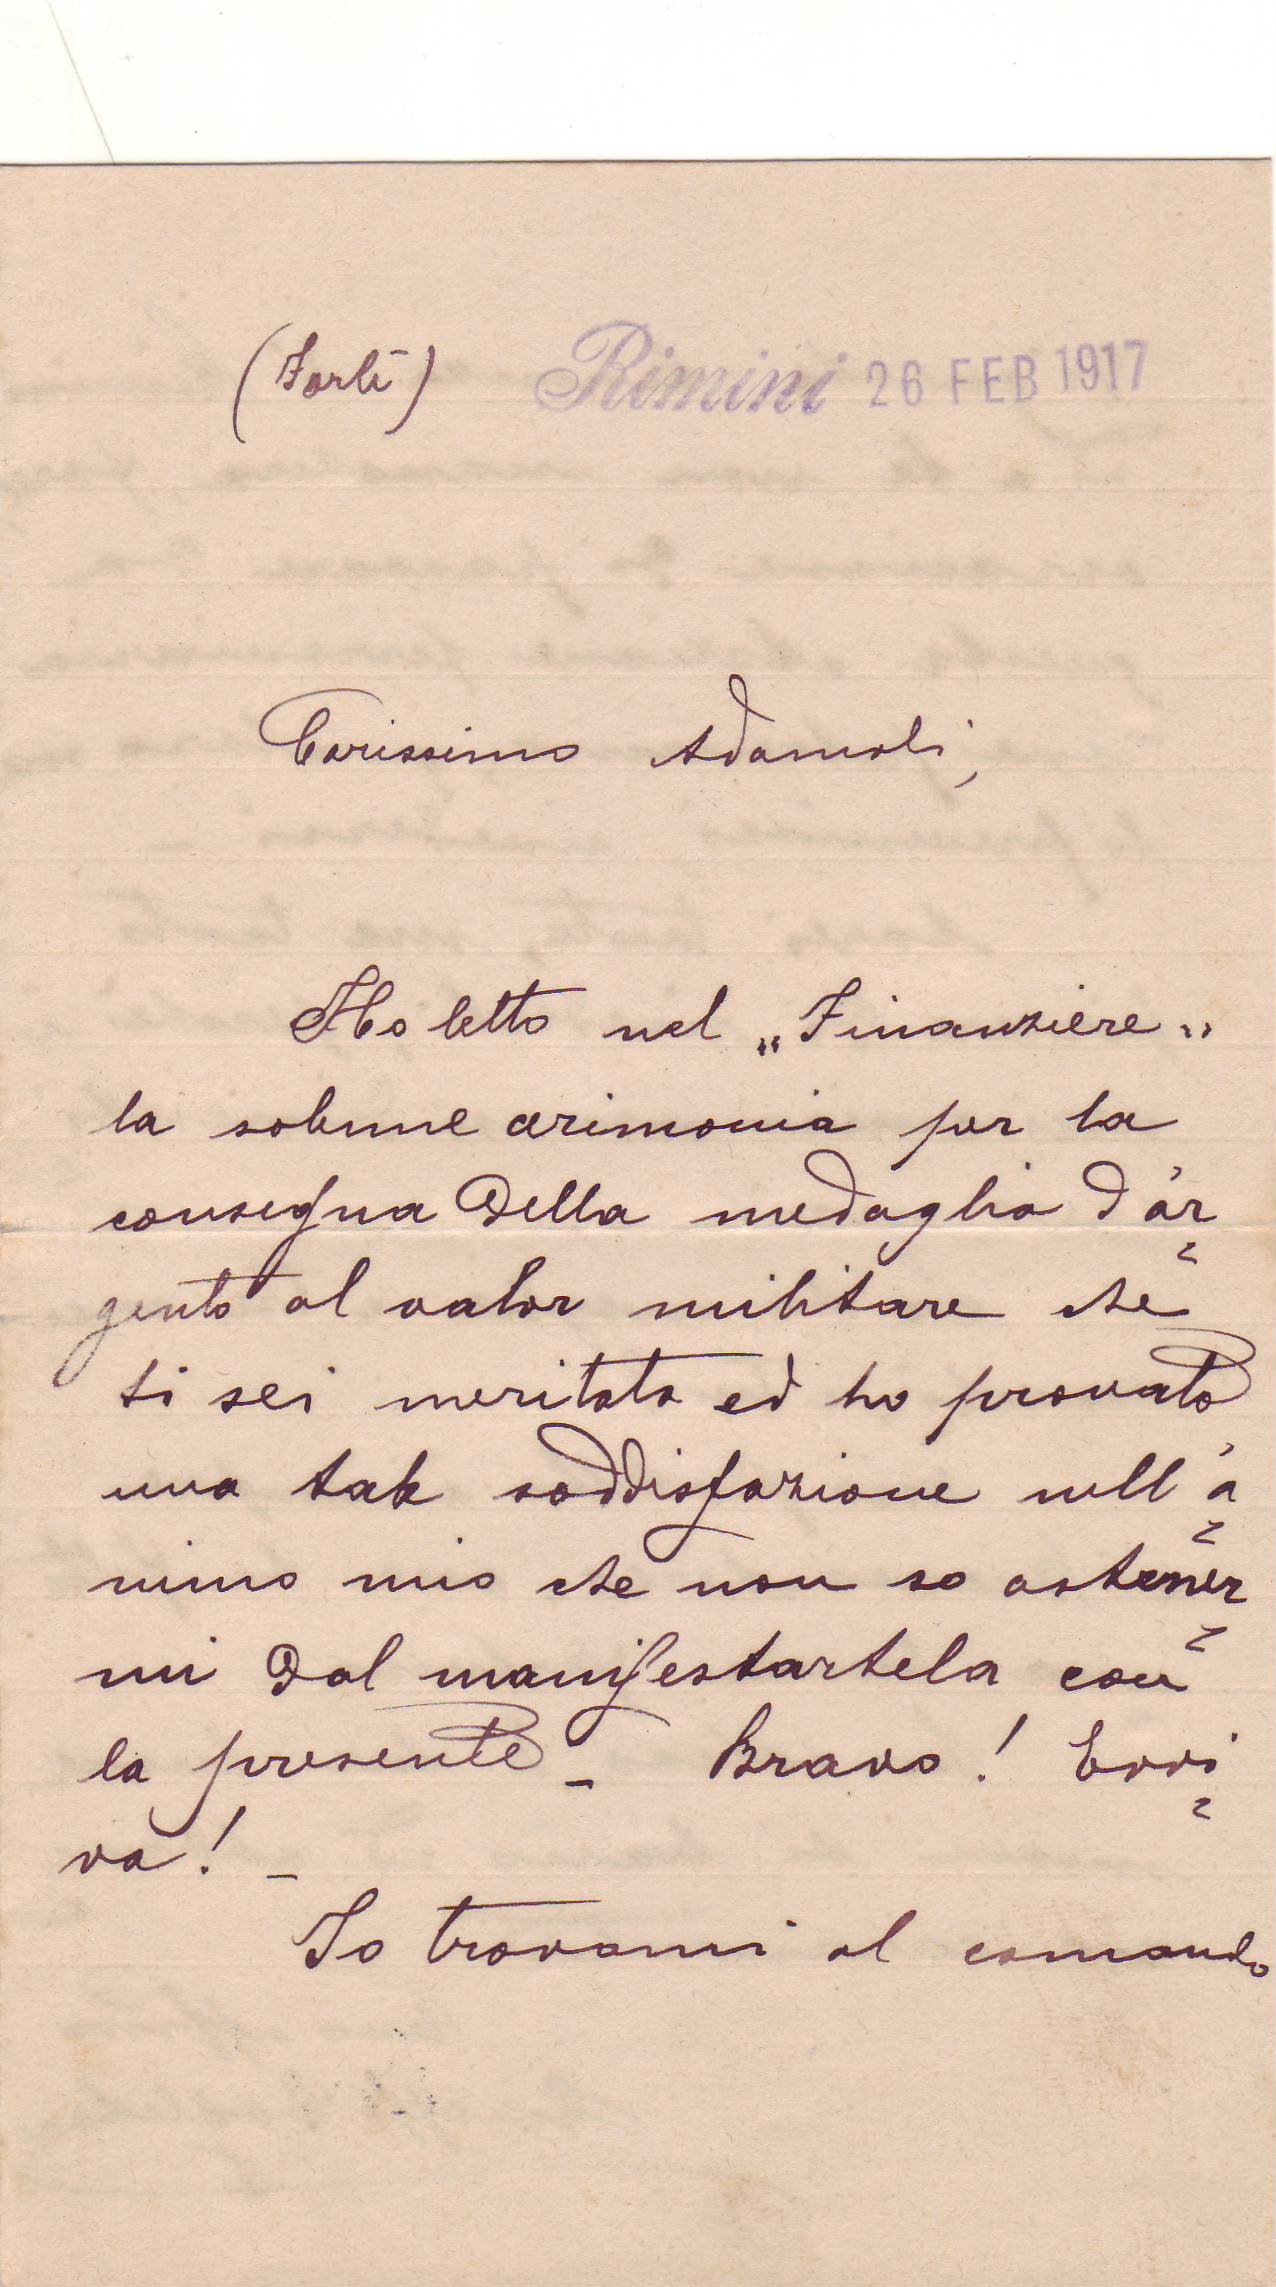 (Forlì) Rimini 26 FEB 1917
Carissimo Adamoli,
Ho letto nel „Finanziere„
la solenne cerimonia per la
consegna della medaglia d'ar=
gento al valor militare che
ti sei meritata ed ho provato
una tale soddisfazione nell'a=
nimo mio che non so astener=
mi dal manifestartela con
la presente – Bravo! Evvi=
va! –
Io trovami al comando